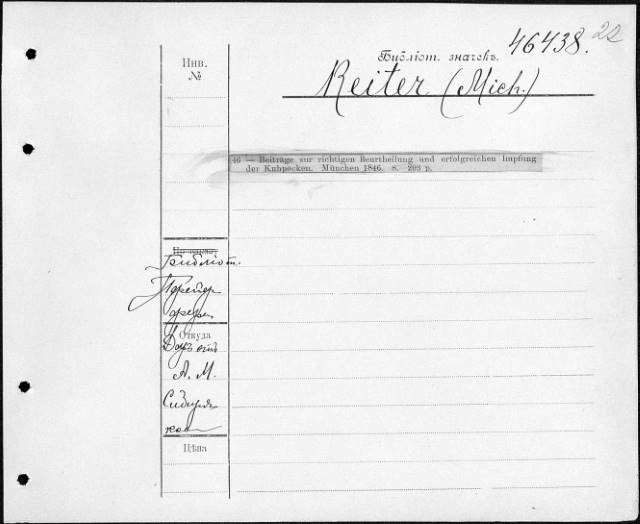 46438. 22
Инв.
№
Библіот. значекъ.
Reiter (Mich.)
46 — Beiträge zur richtigen Beurtheilung und erfolgreichen Impfung
der Kuhpocken. München 1846. 8. 203 p.
Библіот.
Откуда
Даръ отъ
А. М.
Сибиря-
кова
Цѣна